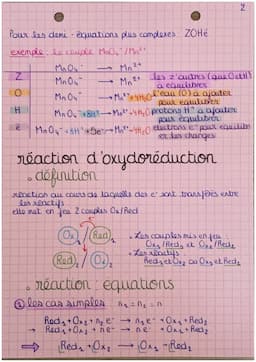 2
Pour les demi-équations plus complexes: ZOHé
exemple: le couple MnO₄⁻/Mn²⁺
Z MnO₄⁻ → Mn²⁺ les z'autres (que O et H) à équilibrer
O MnO₄⁻ → Mn²⁺+4H₂O l'eau (O) à ajouter pour équilibrer
H MnO₄⁻+8H⁺ → Mn²⁺+4H₂O protons H⁺ à ajouter pour équilibrer
é MnO₄⁻+8H⁺+5e⁻→Mn²⁺+4H₂O électrons e⁻ pour équilibrer les charges
réaction d'oxydoréduction
définition
réaction au cours de laquelle des e⁻ sont transférés entre
les réactifs
elle met en jeu 2 couples Ox/Red
Ox₁ Red₂
Red₁ Ox₂
• Les couples mis en jeu:
Ox₁/Red₁ et Ox₂/Red₂
• Les réactifs
Red₁ et Ox₂ ou Ox₁ et Red₂
réaction: équations
① les cas simples: n₁ = n₂ = n
Red₁ + Ox₂ + n₂e⁻ → n₁e⁻ + Ox₁ + Red₂
→ Red₁ + Ox₂ + ne⁻ → ne⁻ + Ox₁ + Red₂
⇒ Red₁ + Ox₂ → Ox₁ + Red₂